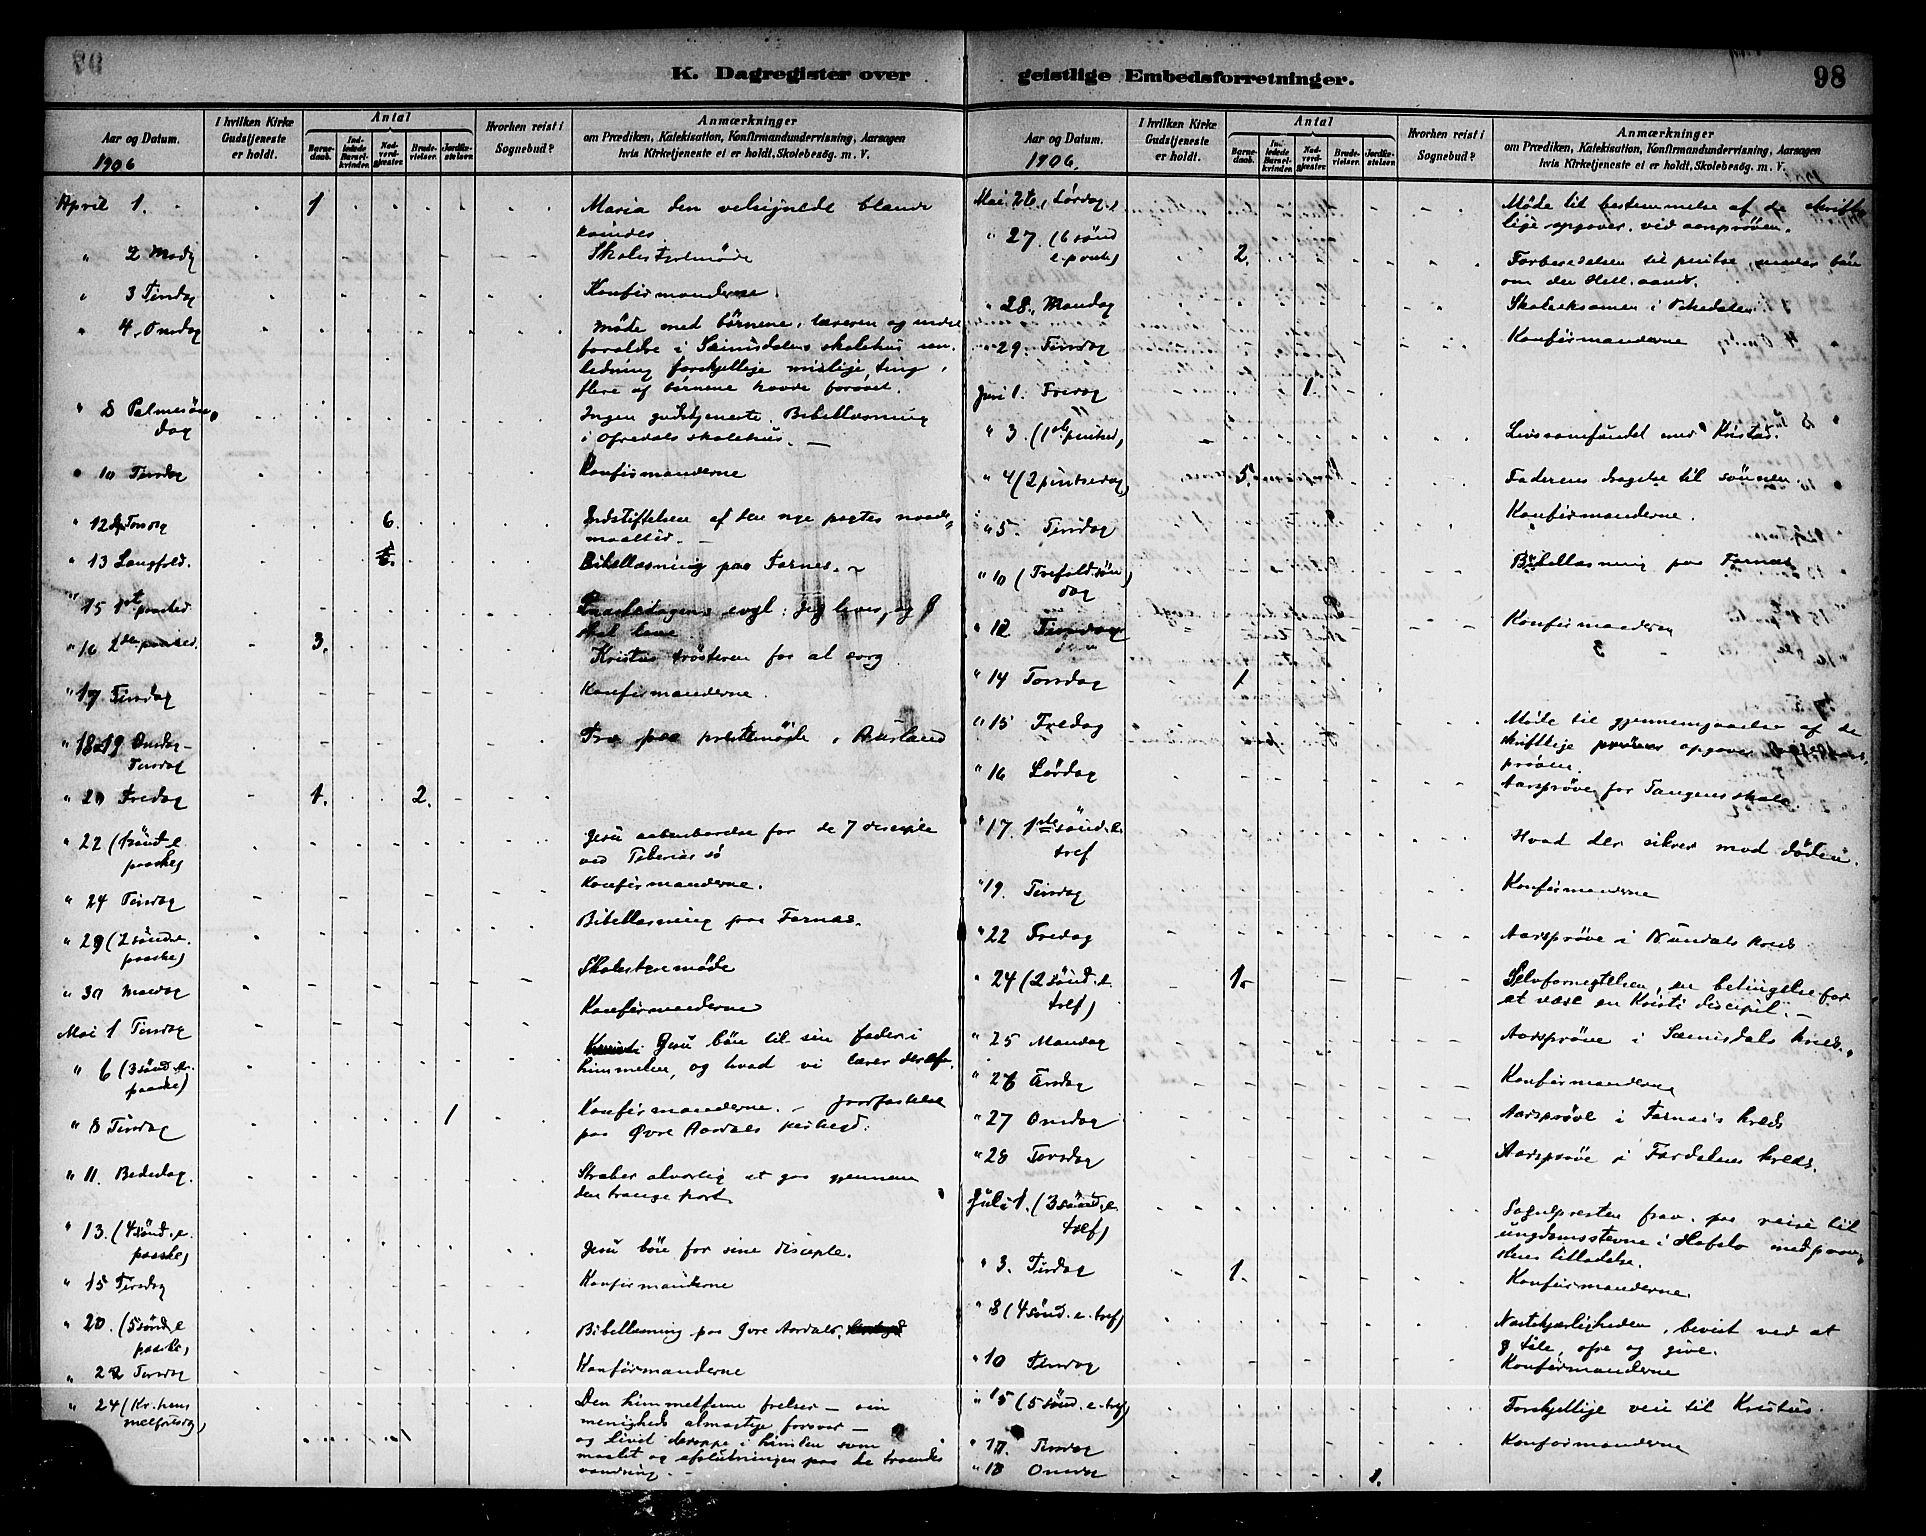 K. Dagregister over
Aar og Datum.
I hvilken Kirke Gudstjeneste er holdt.
Antal
Barnedaab.
Indledede Barselkvinder.
Nadvergjæster.
Brudevielser.
Jordfæstelser.
Hvorhen reist i Sognebud?
Anmærkninger
om Prædiken, Katekisation, Konfirmandundervisning, Aarsagen
hvis Kirketjeneste ei er holdt, Skolebesøg. m. V.
1906
April 1. 1 Maria den velsignede blandt
kvinder.
" 2 Mandg Skolestyremöde
" 3 Tirsdag Konfirmanderne.
" 4. Onsdag Möde med börnene, læreren og
foraldre i Seimsdalens skolehus
ledning forskjellige mislige ting,
flere af börnene havde forövet.
" 8 Palmesön
dag Ingen gudstjeneste. Bibellæsning
i Ofredals skolehus. —
" 10 Tirsdag Konfirmanderne
" 12 Torsdg 6. Indstiftelsen af den nye pagtes naade
maaltid. —
" 13 Langfred. Bibellæsning paa Farnes. —
" 15 1ste paasked. evgl: Jeg lever, og I
skal leve
" 16 2den paasked. 3. Kristus trösteren for al sorg
" 17 Tirsdag Konfirmanderne.
" 18-19 Onsdag-
Torsdag paa prestemöde i Aurland
" 20 Fredag 1. 2.
" 22 (1sönd. e.
paaske) Jesu aabenbarelse for de 7 disciple
ved Tiberias sö
" 24 Tirsdag Konfirmanderne.
" 29 (2 sönd. e.
paaske) Bibellæsning paa Farnæs.
" 30 Mandag Skolestyremöde
Mai 1 Tirsdag Konfirmanderne
" 6 (3 sönd. e.
paaske) Jesu bön til sin fader i
himmelen, og hvad vi lærer deraf.
" 8 Tirsdag 1 Konfirmanderne. – Jordfæstelse
paa Övre Aardals
" 11. Bededag. Stræber alvorlig at gaa gjennem
den trange port
" 13. (4 sönd. e.
paaske) Jesu bön for sine disciple.
" 15 Tirsdag Konfirmanderne
" 20. (5 sönd. e
paaske) Bibellæsning paa Övre Aardal.
" 22 Tirsdag Konfirmanderne
" 24 (Kr. him
melfartsdg) Den himmelfarne frelser — sin
menigheds almægtige forsvar —
og livet deroppe i himlen som
maalet og afslutningen paa de troendes
vandring. —
geistlige Embedsforretninger.
98
Aar og Datum.
I hvilken Kirke Gudstjeneste er holdt.
Antal
Barnedaab.
Indledede Barselkvinder.
Nadvergjæster.
Brudevielser.
Jordfæstelser.
Hvorhen reist i Sognebud?
Anmærkninger
om Prædiken, Katekisation, Konfirmandundervisning, Aarsagen
hvis Kirketjeneste ei er holdt, Skolebesøg. m. V.
1906.
Mai 26. Lørdag Möde til bestemmelse af de skrift
lige opgaver, ved aarspröven.
" 27. (6 sönd
e paaske) 2. Forberedelsen til pintse, under bön
om den Hell. aand.
" 28. Mandag Skoleeksamen i Ofredalen
" 29. Tirsdag Konfirmanderne
Juni 1. Fredag 1.
" 3. (1ste pintsed) Livssamfundet med Kristus.
" 4 (2 pintsedag) 5. Faderens dragelse til sönnen
" 5. Tirsdag Konfirmanderne.
" 10 (Trefoldsön
dag Bibellæsning paa Farnæs
" 12 Tirsdag Konfirmanderne
" 14 Torsdag 1
" 15 Fredag Möde til gjennemgaaelse af de
skriftlige opgaver
pröven.
" 16 Lördag Aarspröve for Tangens skole
" 17. 1ste sönd. e.
tref Hvad der sikrer mod döden.
" 19. Tirsdag Konfirmanderne
" 22 Fredag Aarspröve i Nundals kreds
" 24 (2 sönd. e.
tref) 1. Selvfornegtelsen, en betingelse for
at være en Kristi discipel. —
" 25 Mandag Aarspröve i Seimsdals kreds.
" 26 Tirsdag Konfirmanderne
" 27 Onsdag Aarspröve i Farnæs kreds
" 28 Torsdag Aarspröve i Fardalens kreds.
Juli 1. (3 sönd. e.
tref) Sognepresten frav. paa reise til
ungdomsstevne i Hafslo med prov
stens tilladelse.
" 3. Tirsdag 1. Konfirmanderne.
" 8 (4 sönd. e. tref) Næstekjærligheden, bevist ved at
tale, ofre og give.
" 10 Tirsdag Konfirmanderne
" 15 (5 sönd. e. tref) Forskjellige veie til Kristus.
" 17. Tirsdag Konfirmanderne
" 18 Onsdag 1.